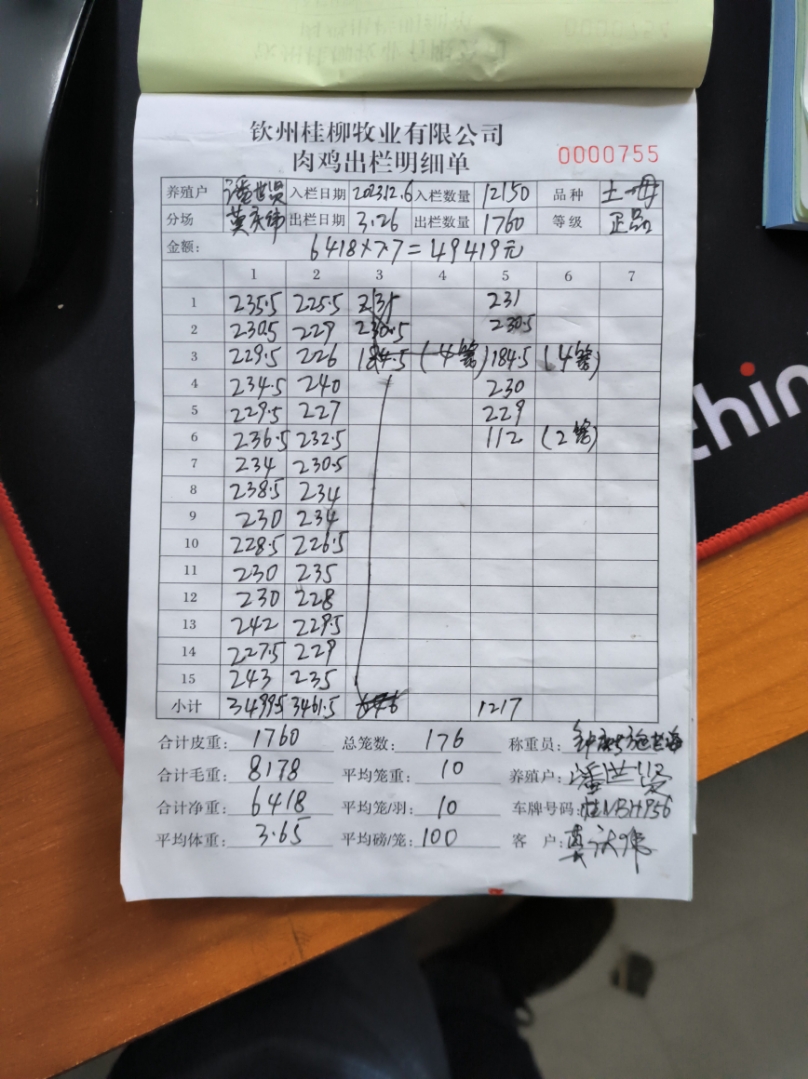 钦州桂柳牧业有限公司
肉鸡出栏明细单
0000755
养殖户 潘世贤 入栏日期 2023.12.6 入栏数量 12150 品种 土母
分场 莫庆纬 出栏日期 3.26 出栏数量 1760 等级 正品
金额: 6418×7.7=49419元
1 2 3 4 5 6 7
1 235.5 225.5 231 231
2 230.5 229 230.5 230.5
3 229.5 226 184.5 (4笼) 184.5 (4笼)
4 234.5 240 230
5 229.5 227 229
6 236.5 232.5 112 (2笼)
7 234 230.5
8 238.5 234
9 230 234
10 228.5 226.5
11 230 235
12 230 228
13 242 229.5
14 227.5 229
15 243 235
小计 3499.5 3461.5 646 1217
合计皮重: 1760 总笼数: 176 称重员:
合计毛重: 8178 平均笼重: 10 养殖户: 潘世贤
合计净重: 6418 平均笼/羽: 10 车牌号码: 桂NBH956
平均体重: 3.65 平均磅/笼: 100 客户:
hin